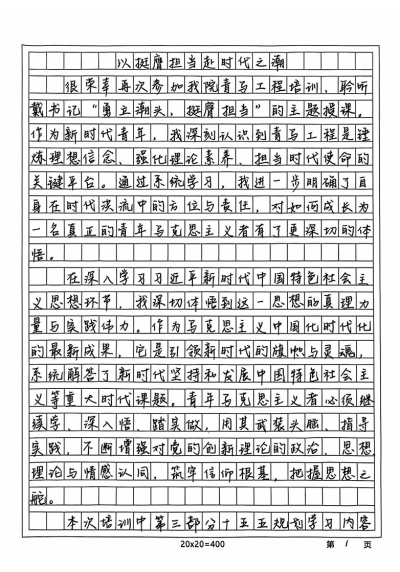 以挺膺担当赴时代之潮
很荣幸再次参加我院青马工程培训，聆听
戴书记“勇立潮头，挺膺担当”的主题授课。
作为新时代青年，我深刻认识到青马工程是锤
炼理想信念、强化理论素养、担当时代使命的
关键平台。通过系统学习，我进一步明确了自
身在时代洪流中的方位与责任，对如何成长为
一名真正的青年马克思主义者有了更深切的体
悟。
在深入学习习近平新时代中国特色社会主
义思想环节，我深切体悟到这一思想的真理力
量与实践伟力。作为马克思主义中国化时代化
的最新成果，它是引领新时代的旗帜与灵魂，
系统解答了新时代坚持和发展中国特色社会主
义等重大时代课题。青年马克思主义者必须继
续学、深入悟、踏实做，用其武装头脑、指导
实践，不断增强对党的创新理论的政治、思想
理论与情感认同，筑牢信仰根基，把握思想之
舵。
本次培训中第三部分十五五规划学习内容
20x20=400
第 1 页